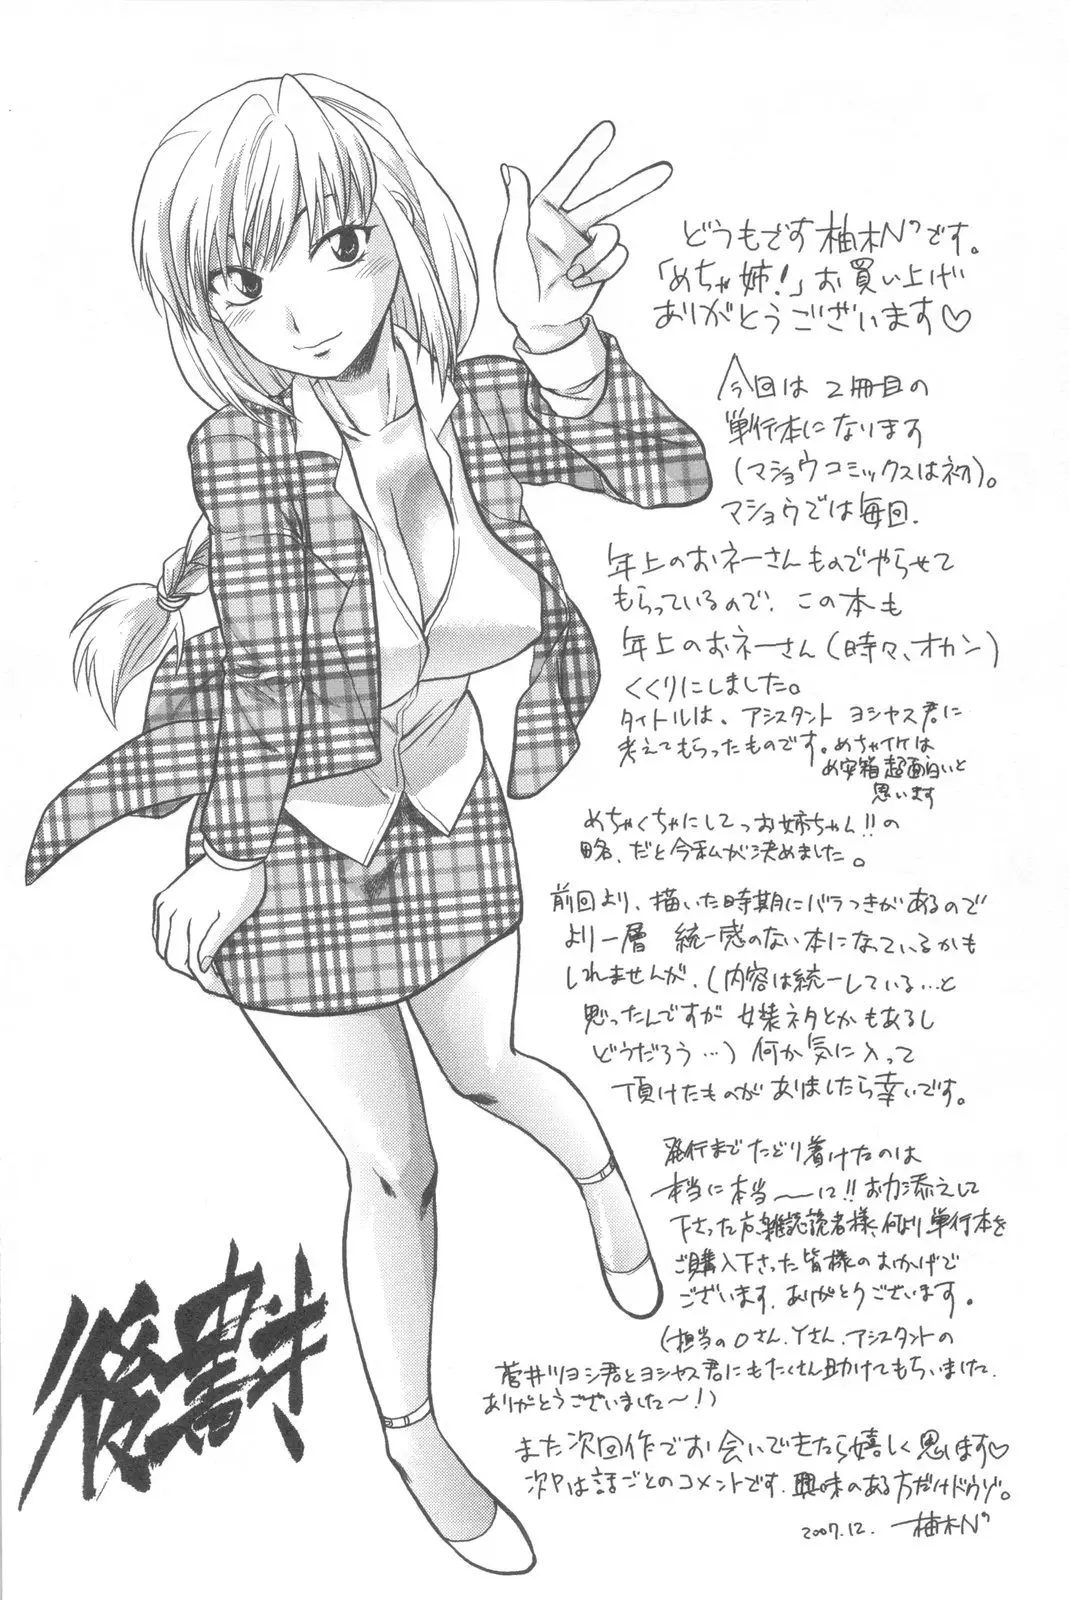 どうもです柚木N'です。
「めちゃ姉!」お買い上げ
ありがとうございます♡
今回は2冊目の
単行本になります
(マショウコミックスは初)。
マショウでは毎回.
年上のおネーさんものでやらせて
もらっているので、この本も
年上のおネーさん(時々、オカン)
くくりにしました。
タイトルは、アシスタント ヨシヤス君に
考えてもらったものです。めちゃイケは
め安箱超面白いと
思います
めちゃくちゃにしてっお姉ちゃん!!の
略、だと今私が決めました。
前回より、描いた時期にバラつきがあるので
より一層 統一感のない本になっているかも
しれませんが、(内容は統一している…と
思ったんですが 女装ネタとかもあるし
どうだろう…) 何か気に入って
頂けたものがありましたら幸いです。
発行までたどり着けたのは
本当に本当〜に!!お力添えして
下さった方、雑誌読者様、何より単行本を
ご購入下さった皆様のおかげで
ございます、ありがとうございます。
(担当のOさん、Yさん、アシスタントの
菅井ツヨシ君とヨシヤス君にもたくさん助けてもらいました、
ありがとうございました〜!)
また次回作でお会いできたら嬉しく思います♡
次Pは話ごとのコメントです、興味のある方だけドウゾ。
2007.12. 柚木N'
後書き